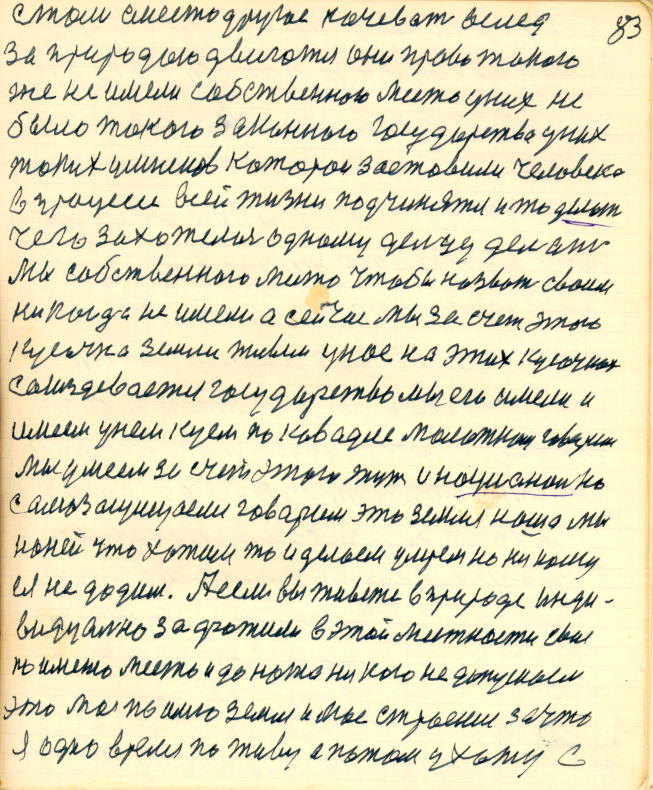 83
стом сместо другое кочеват вслед
за природою двигатся они право такого
же не имели собственного место у них не
было такого законного государства у них
таких уменков которои заставили человека
в процесе всей жизни подчинятся и то делат
чего захотелоя одному делцу делат
Мы собственного место чтобы назват своим
никогда не имели а сейчас мы за счет этого
кусочка земли живем у нас на этих кусочках
создевается государство мы его имели и
имеем у нем куем по ковадле молотком говарим
мы умеем за счет этого жит и национално
самозащищаем говарим это земля наша мы
на ней что хотим то и делаем умрем но ни кому
ея не дадим. А если вы живете в природе инди-
видуално задражили в этой местности свое
по името место и до ножа ни кого не допускаем
это моя по имю земля и мое строение за что
я одно время поживу а потом ухожу с